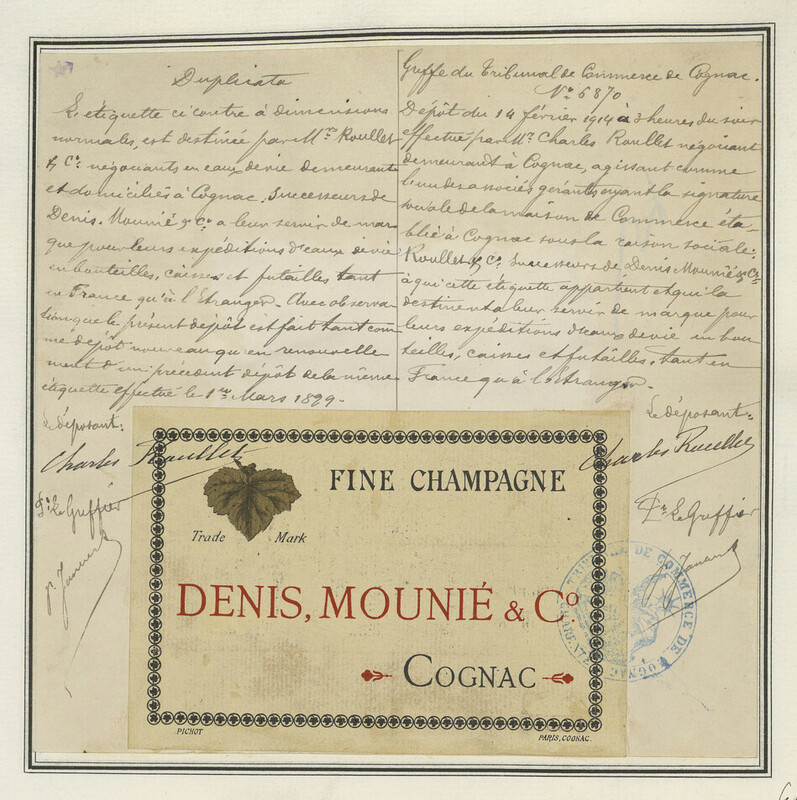 Duplicata
L'étiquette ci contre à dimensions
normales, est destinée par Mrs Roullet
& Co négociants en eaux de vie demeurants
et domiciliés à Cognac. Successeurs de
Denis. Mounié & Co a leur servir de mar
que pour leurs expéditions d'eaux de vie
en bouteilles, caisses et futailles tant
en France qu'à l'Etranger. Avec observa
tion que le présent dépôt est fait tant com
me dépôt nouveau qu'en renouvelle
ment d'un précédent dépôt de la même
étiquette effectué le 1er Mars 1899.
Le déposant:
Charles Roullet
Le Greffier
Greffe du Tribunal de Commerce de Cognac.
No 6870
Dépôt du 14 février 1914 à 3 heures du soir
effectué par Mr Charles Roullet négociant
demeurant à Cognac, agissant comme
l'un des associés gérants ayant la signature
sociale de la maison de Commerce éta
blie à Cognac sous la raison sociale:
Roullet & Co Successeurs de Denis Mounié & Co
à qui cette étiquette appartient et qui la
destinent a leur servir de marque pour
leurs expéditions d'eaux de vie en bou
teilles, caisses et futailles, tant en
France qu'à l'Etranger.
Le déposant:
Charles Roullet
Le Greffier
FINE CHAMPAGNE
Trade Mark
DENIS, MOUNIÉ & Co.
COGNAC
PICHOT
PARIS, COGNAC.
TRIBUNAL DE COMMERCE DE COGNAC
CHARENTE